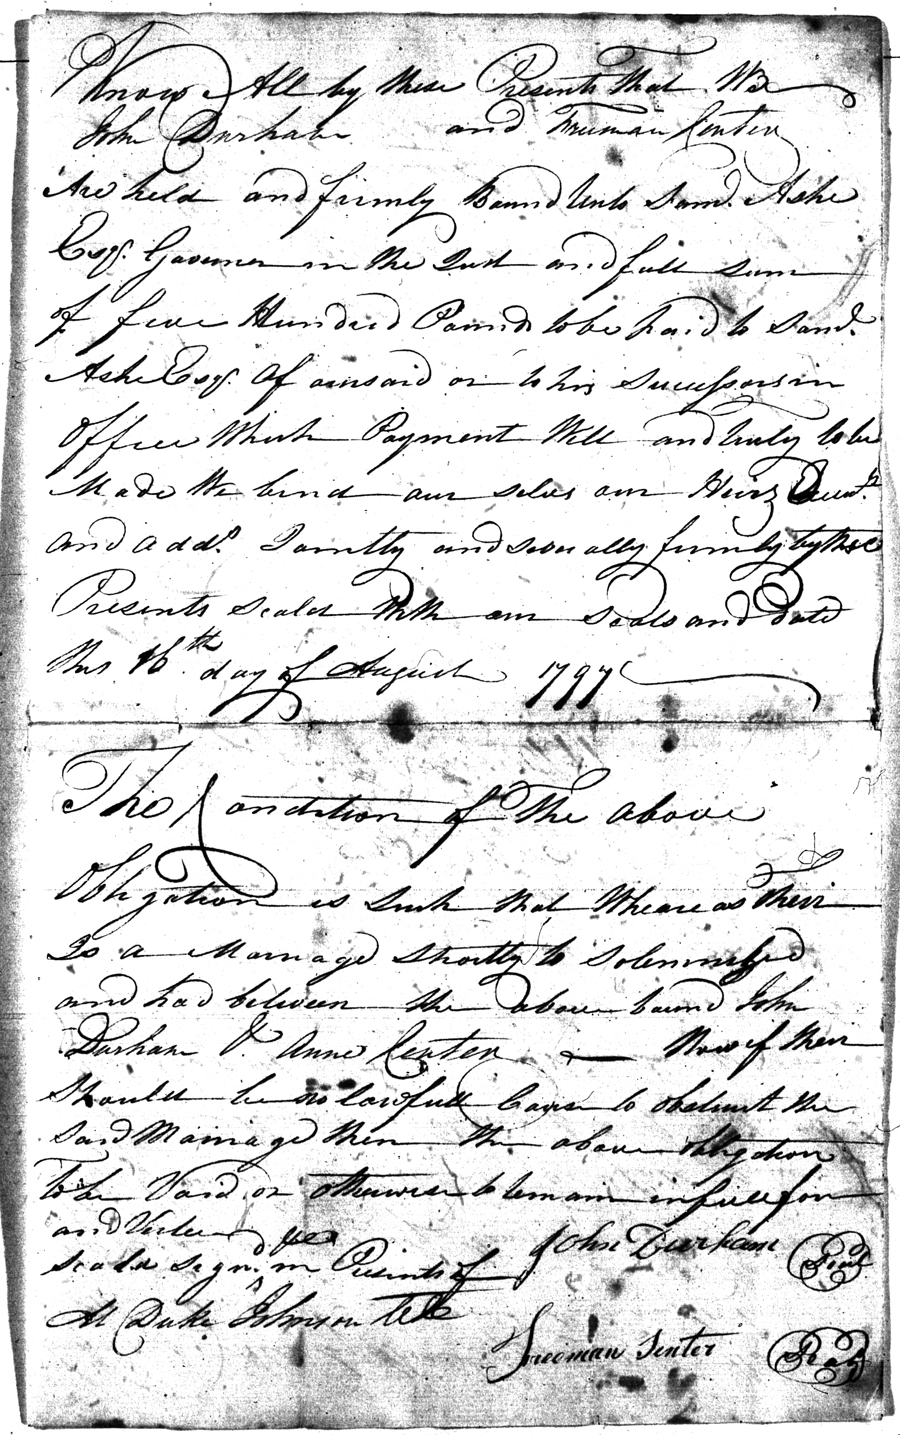 Know All by these Presents That We
John Durham and Freeman Center
Are held and firmly Bound Unto Saml. Ashe
Esqr. Governer in the Just and full sum
of five Hundred Pounds to be paid to Saml.
Ashe Esqr. Of aursaid or to his Successors in
Office Which Payment Well and truly to be
Made We bind our selves our Heirs Exert.s
and Add.s Jointly and severally firmly by these
Presents Seald With our Seals and Dated
this 16th day of August 1797
The Condition of The above
Obligation is Such that Wheare as Their
Is a Marriage Shortly to Solemnized
and had between the above bound John
Durham & Anne Center Now if their
Should be no lawfull Cause to obstruct the
Said Marriage then the above obligation
To be Void or otherwise to remain in full fors
and Vertue
Seald Signd in Presents of John Durham Seal
At Duke Johnson
Freeman Senter Seal